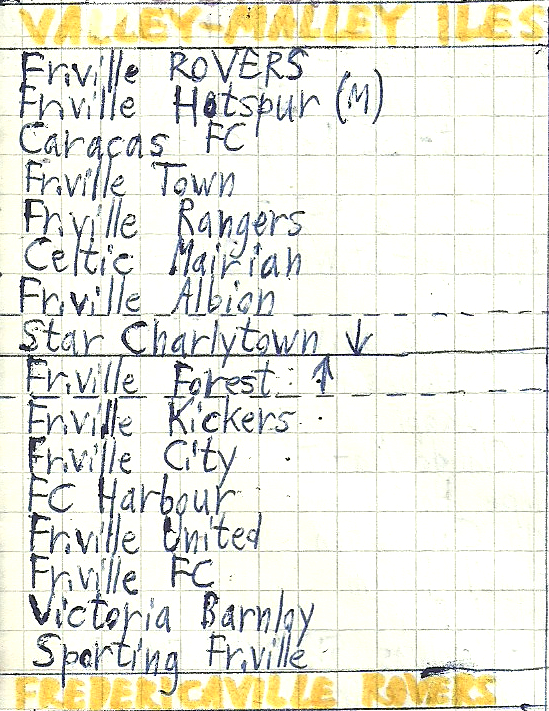 VALLEY-MALLEY ILES
Fr.ville ROVERS
Fr.ville Hotspur (M)
Caracas FC
Fr.ville Town
Fr.ville Rangers
Celtic Mairiah
Fr.ville Albion
Star Charlytown ↓
Fr.ville Forest ↑
Fr.ville Kickers
Fr.ville City
FC Harbour
Fr.ville United
Fr.ville FC
Victoria Barnley
Sporting Fr.ville
FREDERICAVILLE ROVERS